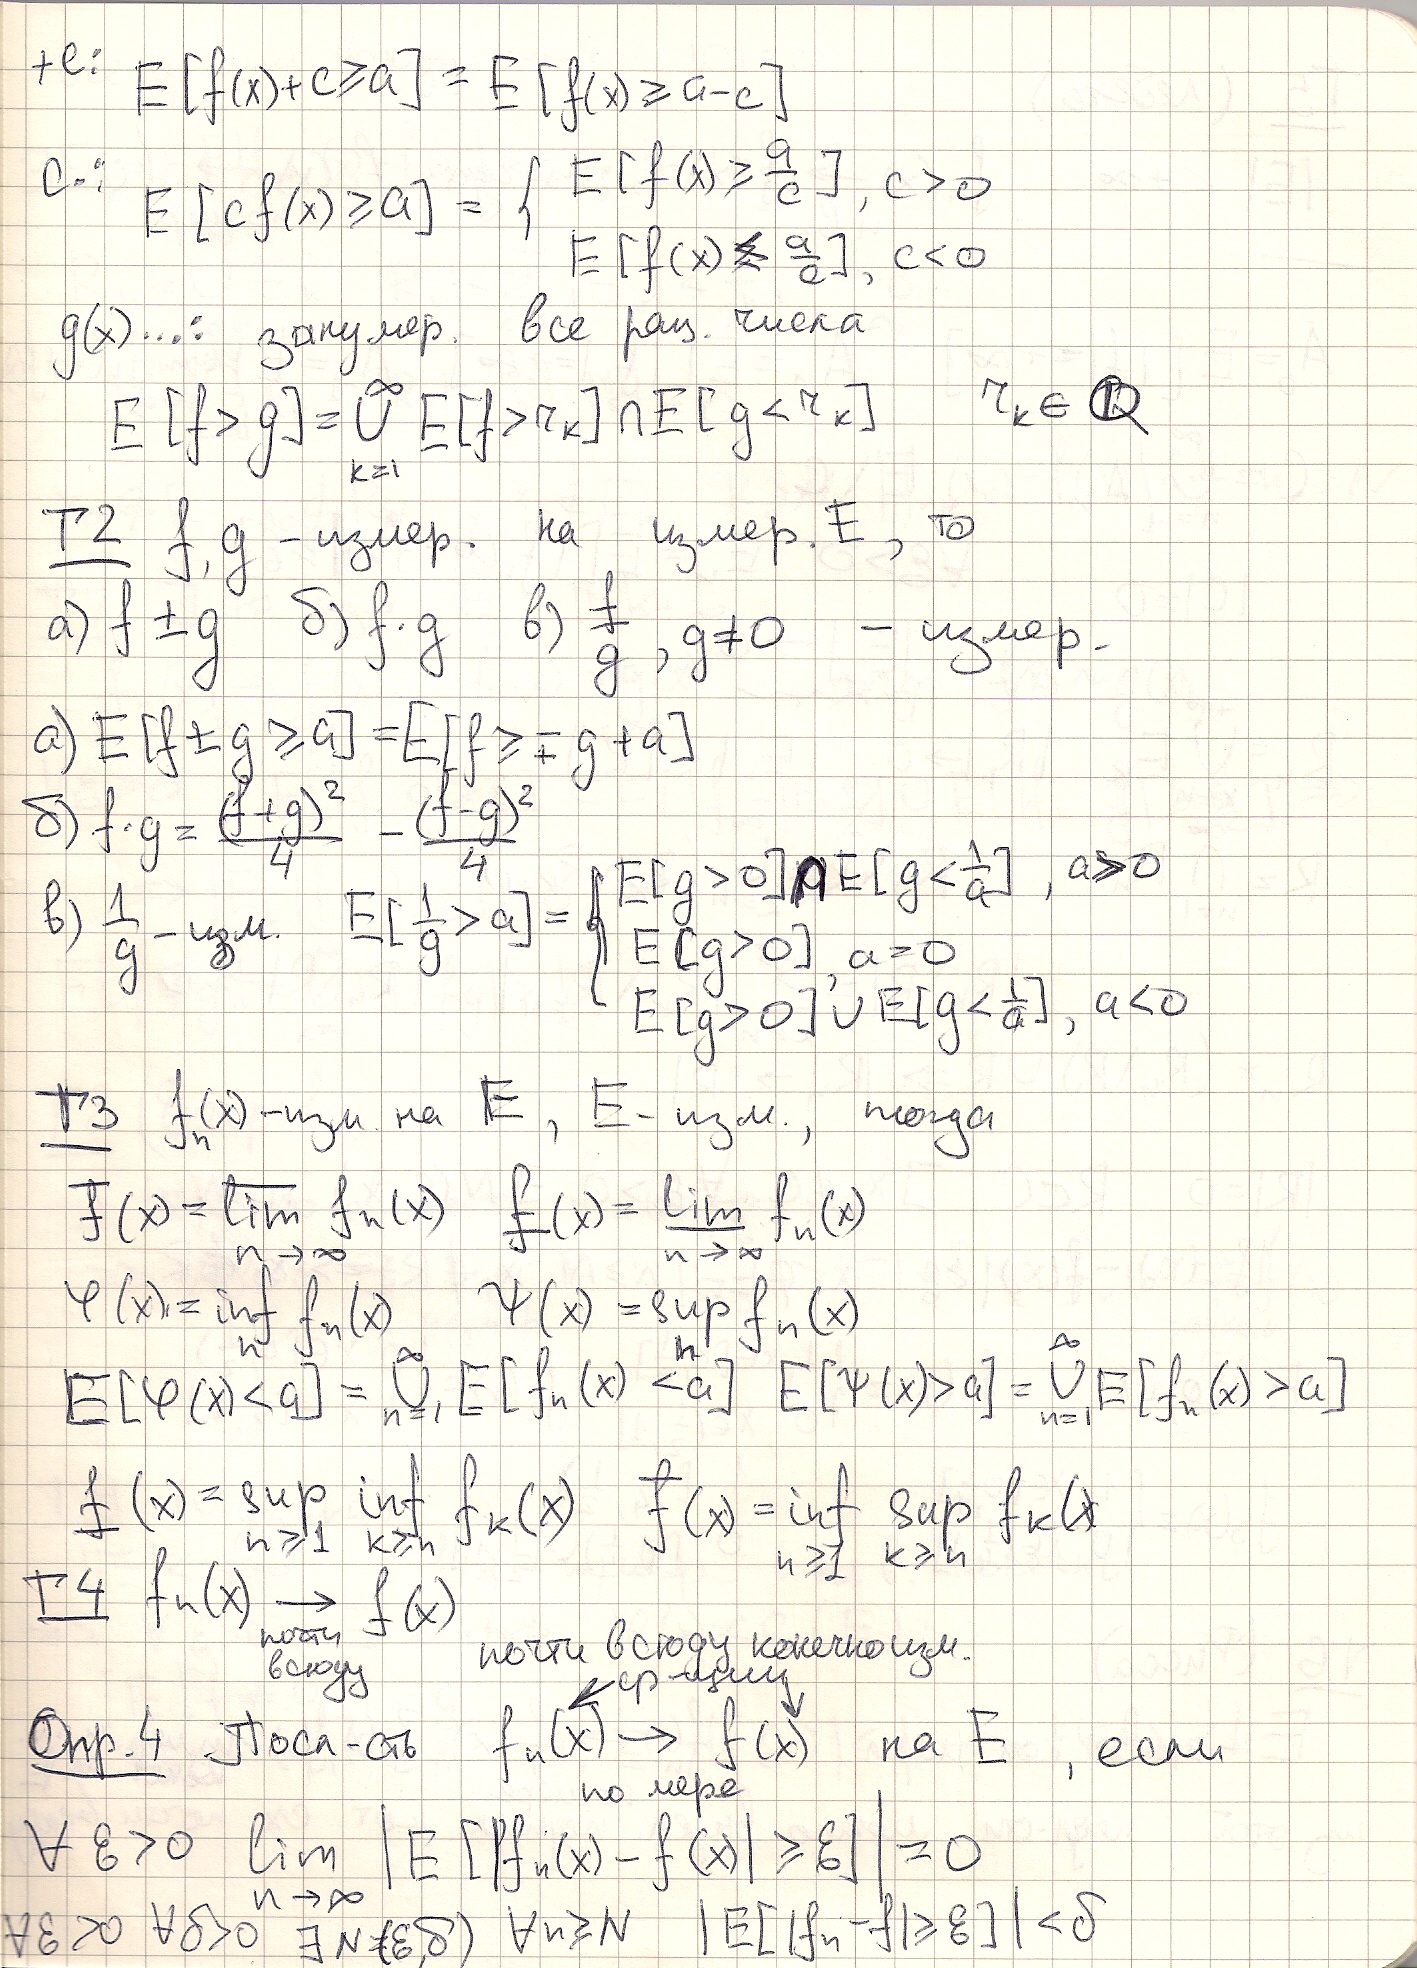 +c: E[f(x)+c≥a] = E[f(x)≥a-c]
c·: E[cf(x)≥a] = { E[f(x)≥a/c], c>0
E[f(x)≤a/c], c<0
g(x)...: занумер. все рац. числа
E[f>g] = ∪_{k=1}^{∞} E[f>r_k]∩E[g<r_k] r_k∈ℚ
T2 f, g - измер. на измер. E, то
а) f±g б) f·g в) f/g, g≠0 - измер.
а) E[f±g≥a]=E[f≥∓g+a]
б) f·g = (f+g)²/4 - (f-g)²/4
в) 1/g - изм. E[1/g>a] = { E[g>0]∩E[g<1/a], a>0
E[g>0], a=0
E[g>0]∪E[g<1/a], a<0
T3 f_n(x) - изм. на E, E - изм., тогда
f̅(x) = \overline{lim}_{n→∞} f_n(x) \underline{f}(x) = \underline{lim}_{n→∞} f_n(x)
φ(x) = inf_n f_n(x) ψ(x) = sup_n f_n(x)
E[φ(x)<a] = ∪_{n=1}^{∞} E[f_n(x)<a] E[ψ(x)>a] = ∪_{n=1}^{∞} E[f_n(x)>a]
\underline{f}(x) = sup_{n≥1} inf_{k≥n} f_k(x) f̅(x) = inf_{n≥1} sup_{k≥n} f_k(x)
T4 f_n(x) → f(x)
почти
всюду
почти всюду конечно изм.
ф-ции
Опр.4 Посл-сть f_n(x) → f(x) на E, если
по мере
∀ε>0 lim_{n→∞} |E[|f_n(x)-f(x)|≥ε]| = 0
∀ε>0 ∀δ>0 ∃N=(ε,δ) ∀n≥N |E[|f_n-f|≥ε]|<δ